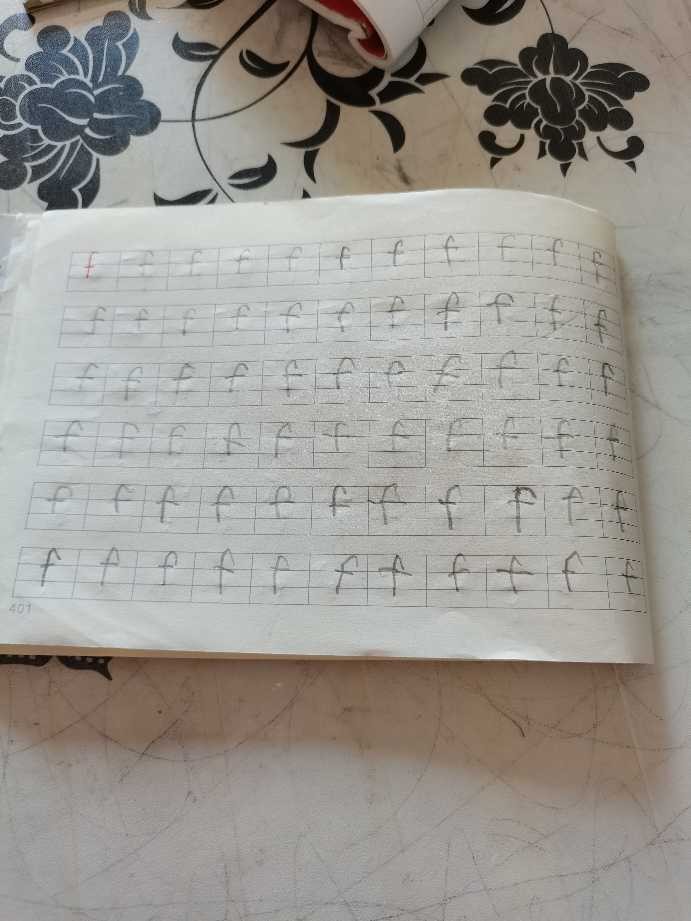 f f f f f f f f f f f
f f f f f f f f f f f
f f f f f f f f f f f
f f f f f f f f f f f
f f f f f f f f f f f
f f f f f f f f f f f
401